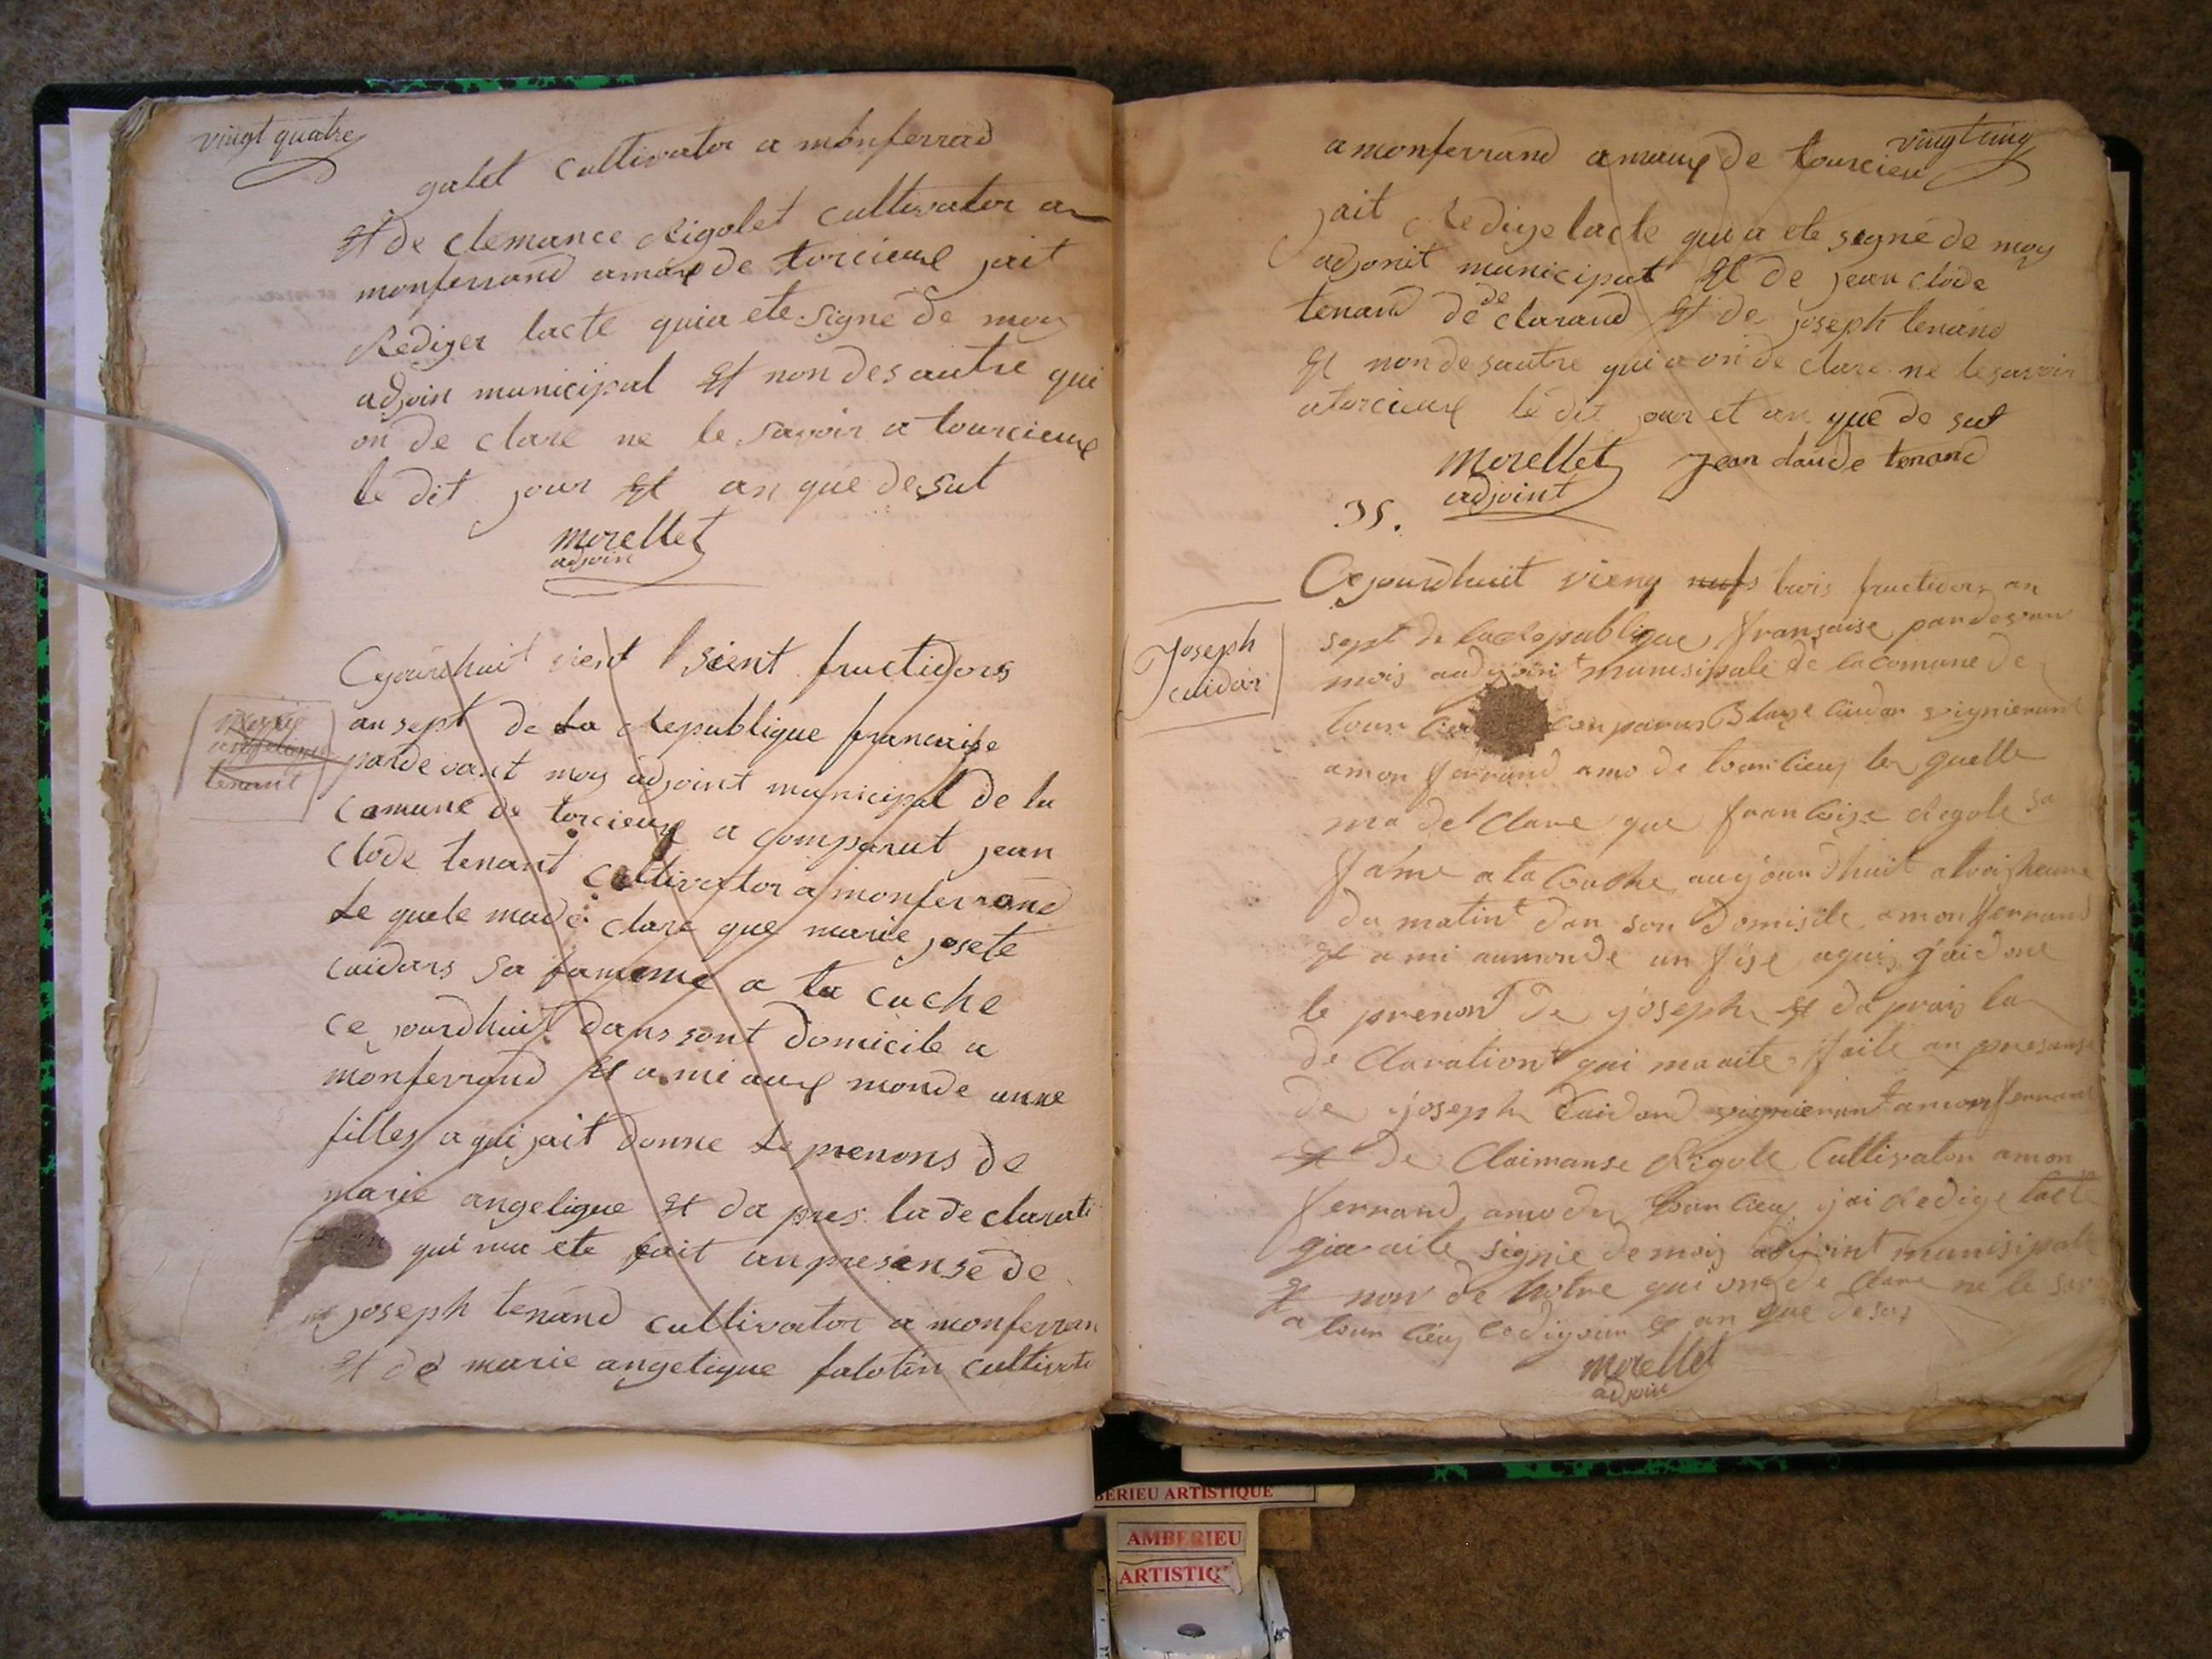 vingt quatre
galet cultivator a monferrad
Et de clemance Rigolet cultivator a
monferrand amaux de torcieux jait
Rediger lacte quia ete Signe de moy
adjoin municipal Et non des autre qui
on de clare ne le savoir a tourcieux
le dit jour Et an que desut
morellet
adjoin
Cejourdhuit vient sient fructidors
an sept de La Republique francaise
parde vant moy adjoint municipal de la
comune de torcieux a comparut jean
clode tenant cultivator a monferrand
Le quele made clare que marie josete
cuidars sa famme a ta cuche
ce jourdhuit dans sont domicile a
monferrand Et a mi aux monde unne
filles a qui jait donne Le prenons de
marie angelique Et da pres la de clarati
qui ma ete fait an presense de
joseph tenand cultivator a monferran
Et de marie angelique falotin cultivato
marie
angelique
tenant
vingt cinq
a monferrand amaux de tourcieu
jait Redige lacte qui a ete segne de moy
adjonit municipat Et de jean clode
tenand de de claraud Et de joseph tenand
Et non des autre qui a on de clare ne le savoir
atorcieux le dit jour et an que de sut
morellet jean claude tenand
adjoint
35.
Joseph
cuidar
Cejourdhuit vieny nufs trois fructidor an
sept de la Republique française pardevan
mois audjoint munisipale de la comune de
tour cieu conparus Blaze cuidar vignieront
amon ferrand amo de tourcieu le quelle
ma de clare que francoise Rigole sa
fame a ta couche aujourdhuit a troisheure
du matint dan son domisile amonferrand
Et a mi aumonde un fise aqui jaidone
le prenont de joseph Et daprais la
de claration qui ma aite faite an presanse
de joseph Cuidard vignieront amonferrand
Et de Claimanse Rigole Cultivator amon
ferrand amo de tourcieu jai Redige lacte
qia aite signie de mois adjoint munisipale
Et non de notre qui on de clare ne le sav
a tourcieu ledijour Et an que desus
morellet
adjoin
BERIEU ARTISTIQUE
AMBERIEU
ARTISTIQ